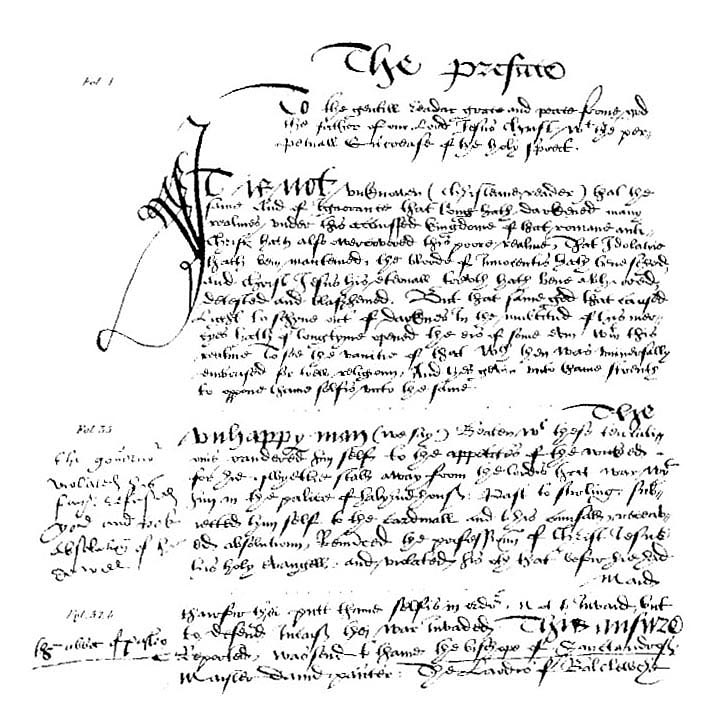 Fol. 1
The preface
To the gentill readar grace and peace frome god
the father of our Lord Jesus Christ, wt the per-
petuall Encrease of the holy spreit.
IT IS NOT vnknowen (Christeane reader) that the
same clud of Ignorance that long hath darkened many
realmes vnder this accurssed kingdome of that romane anti-
christ hath also overcovered this poore realme, That Idolatrie
hath bein manteined, the bloode of innocentis hath bene sched,
and Christ Jesus his eternall treuth hath bene abhorred,
detested and blasphemed. But that same god that caused
light to schyne out of darknes in the multitud of his mer-
cyes hath of longtyme opened the eis of some evin within this
realme To see the vanitie of that wch then was universally
embrased for trew religioun, And hes gevin unto thame strenth
to oppone thame selfis unto the same
The
Fol. 35
the governour
violated his
fayth refused
god and took
absolution of the
devill
vnhappy man (we say) Beaten wt these tentati-
ons randered him self to the appetites of the wicked
for he quyetlie stall away from the lordis that war wt
him in the palice of halyrudhouse: Past to sterling: sub-
jected him self to the cardinall and to his counsall receav-
ed absolutioun, Renunced the professioun of Christ Jesus
his holy evangell and violated his oth that befoir he had
Maid
Fol. 324
thairfor thei putt thame selfis in ordour Not to invaid but
to defend incaise thei war invaded. This ansure
Reported, was send to thame the bischope of
Maister David panter: The Lardis of Balclewcht